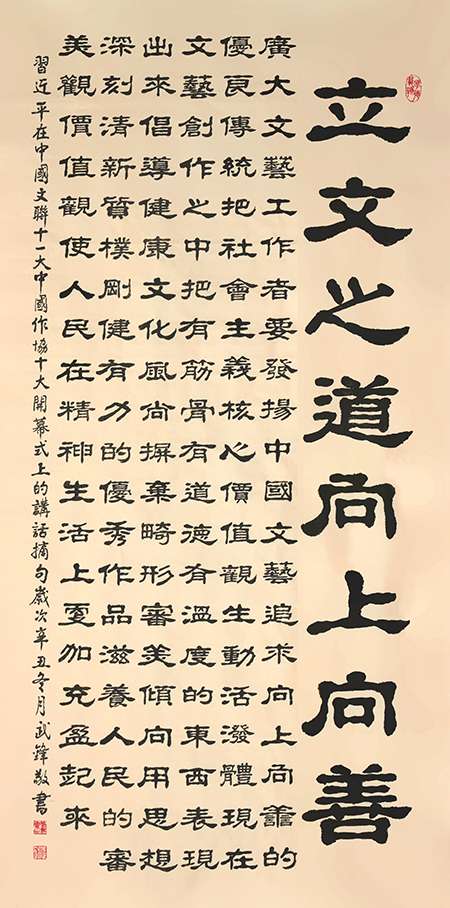 立文之道向上向善
廣大文藝工作者要發揚中國文藝追求向上向善的
優良傳統把社會主義核心價值觀生動活潑體現在
文藝創作之中把有筋骨有道德有溫度的東西表現
出來倡導健康文化風尚摒棄畸形審美傾向用思想
深刻清新質樸剛健有力的優秀作品滋養人民的審
美觀價值觀使人民在精神生活上更加充盈起來
習近平在中國文聯十一大中國作協十大開幕式上的講話摘句歲次辛丑冬月武鋒敬書